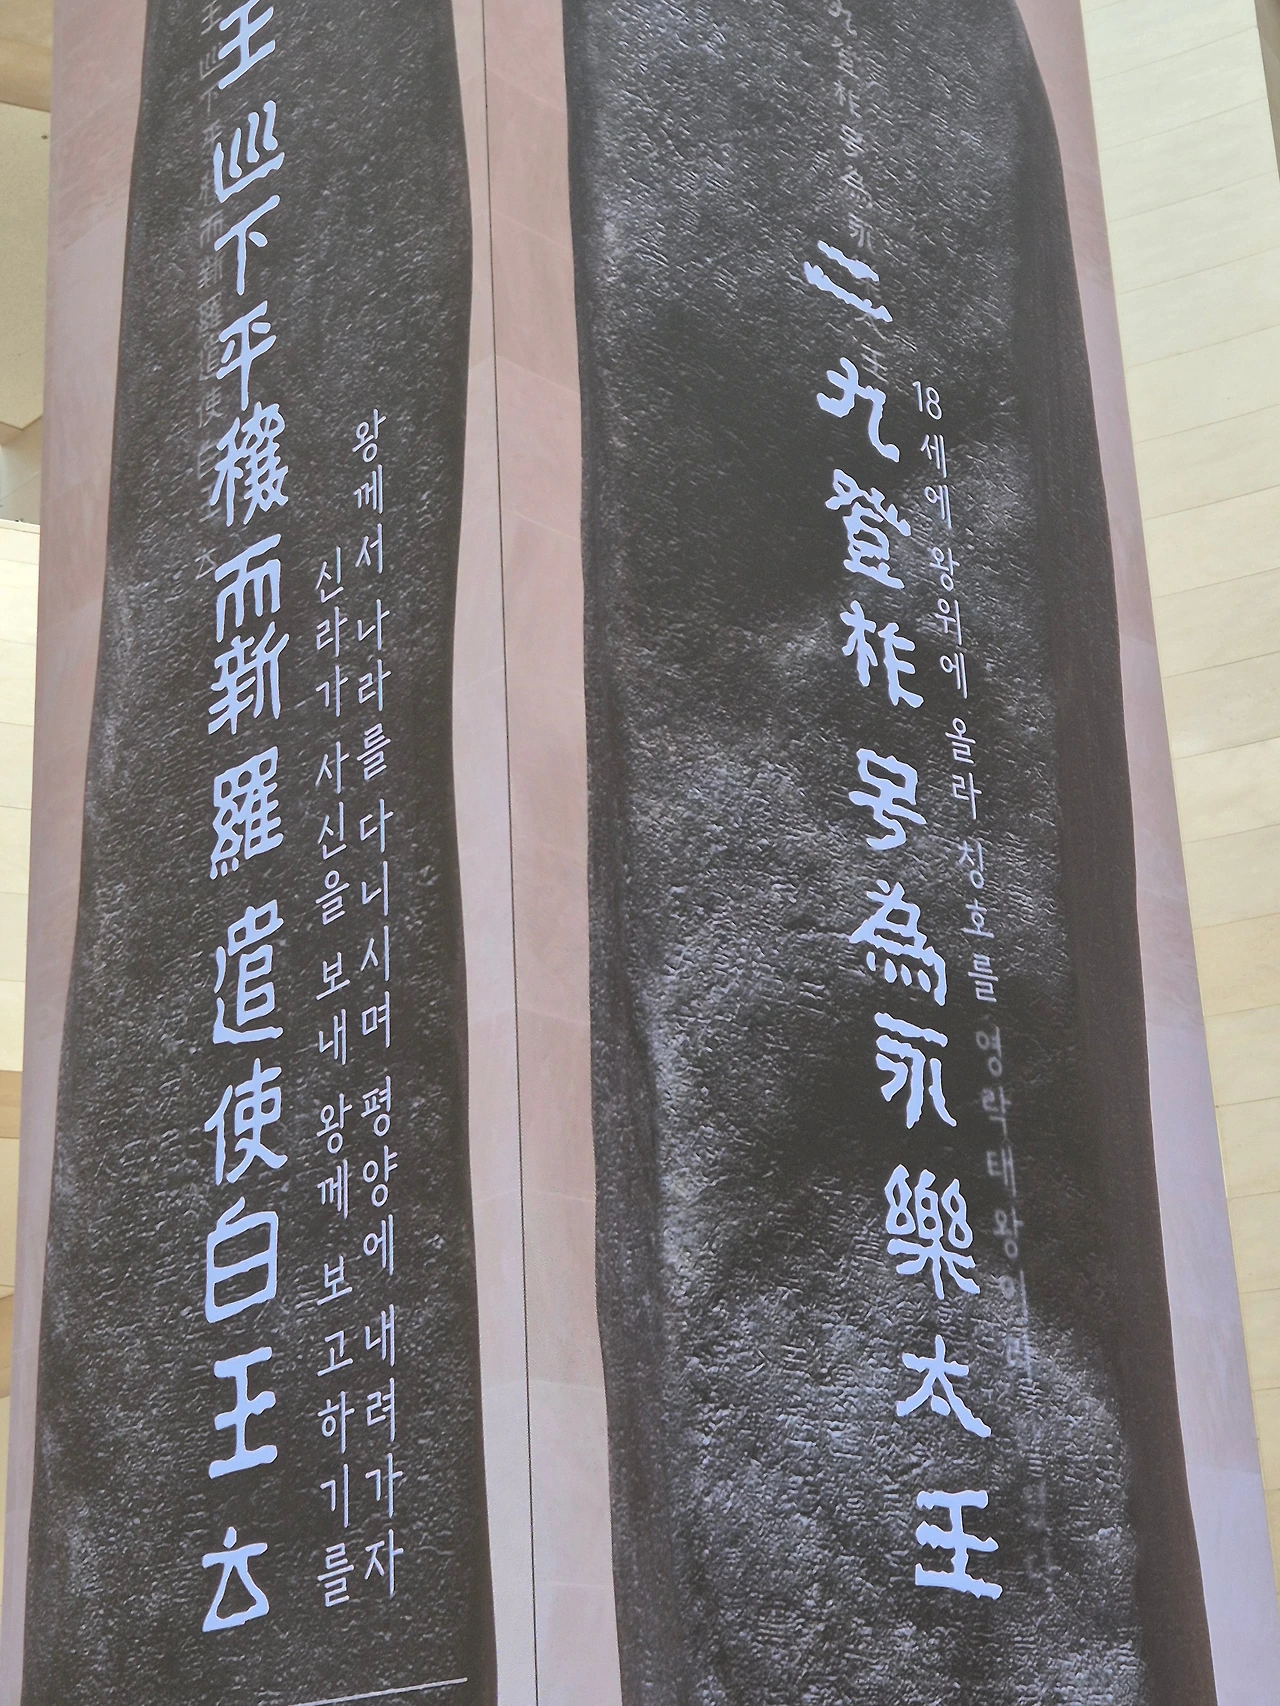 二九登祚号為永樂太王
18세에 왕위에 올라 칭호를 영락태왕이라
王巡下平穰而新羅遣使白王云
왕께서 나라를 다니시며 평양에 내려가자
신라가 사신을 보내 왕께 보고하기를